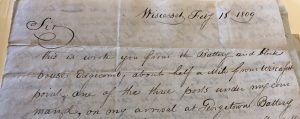 Wiscasset, Feby 18 1809
Sir
This is wrote you from the Battery and Block
House Edgecomb, about half a Mile from Wiscasset
point, one of the three posts under my com
mand, on my arrival at Georgetown Battery